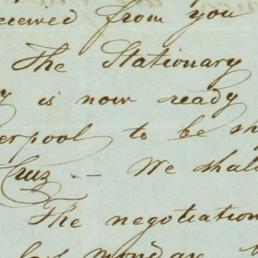 received from you
The Stationary
y is now ready
erpool to be sh
Cruz -- We shal
The negotiation
last monday